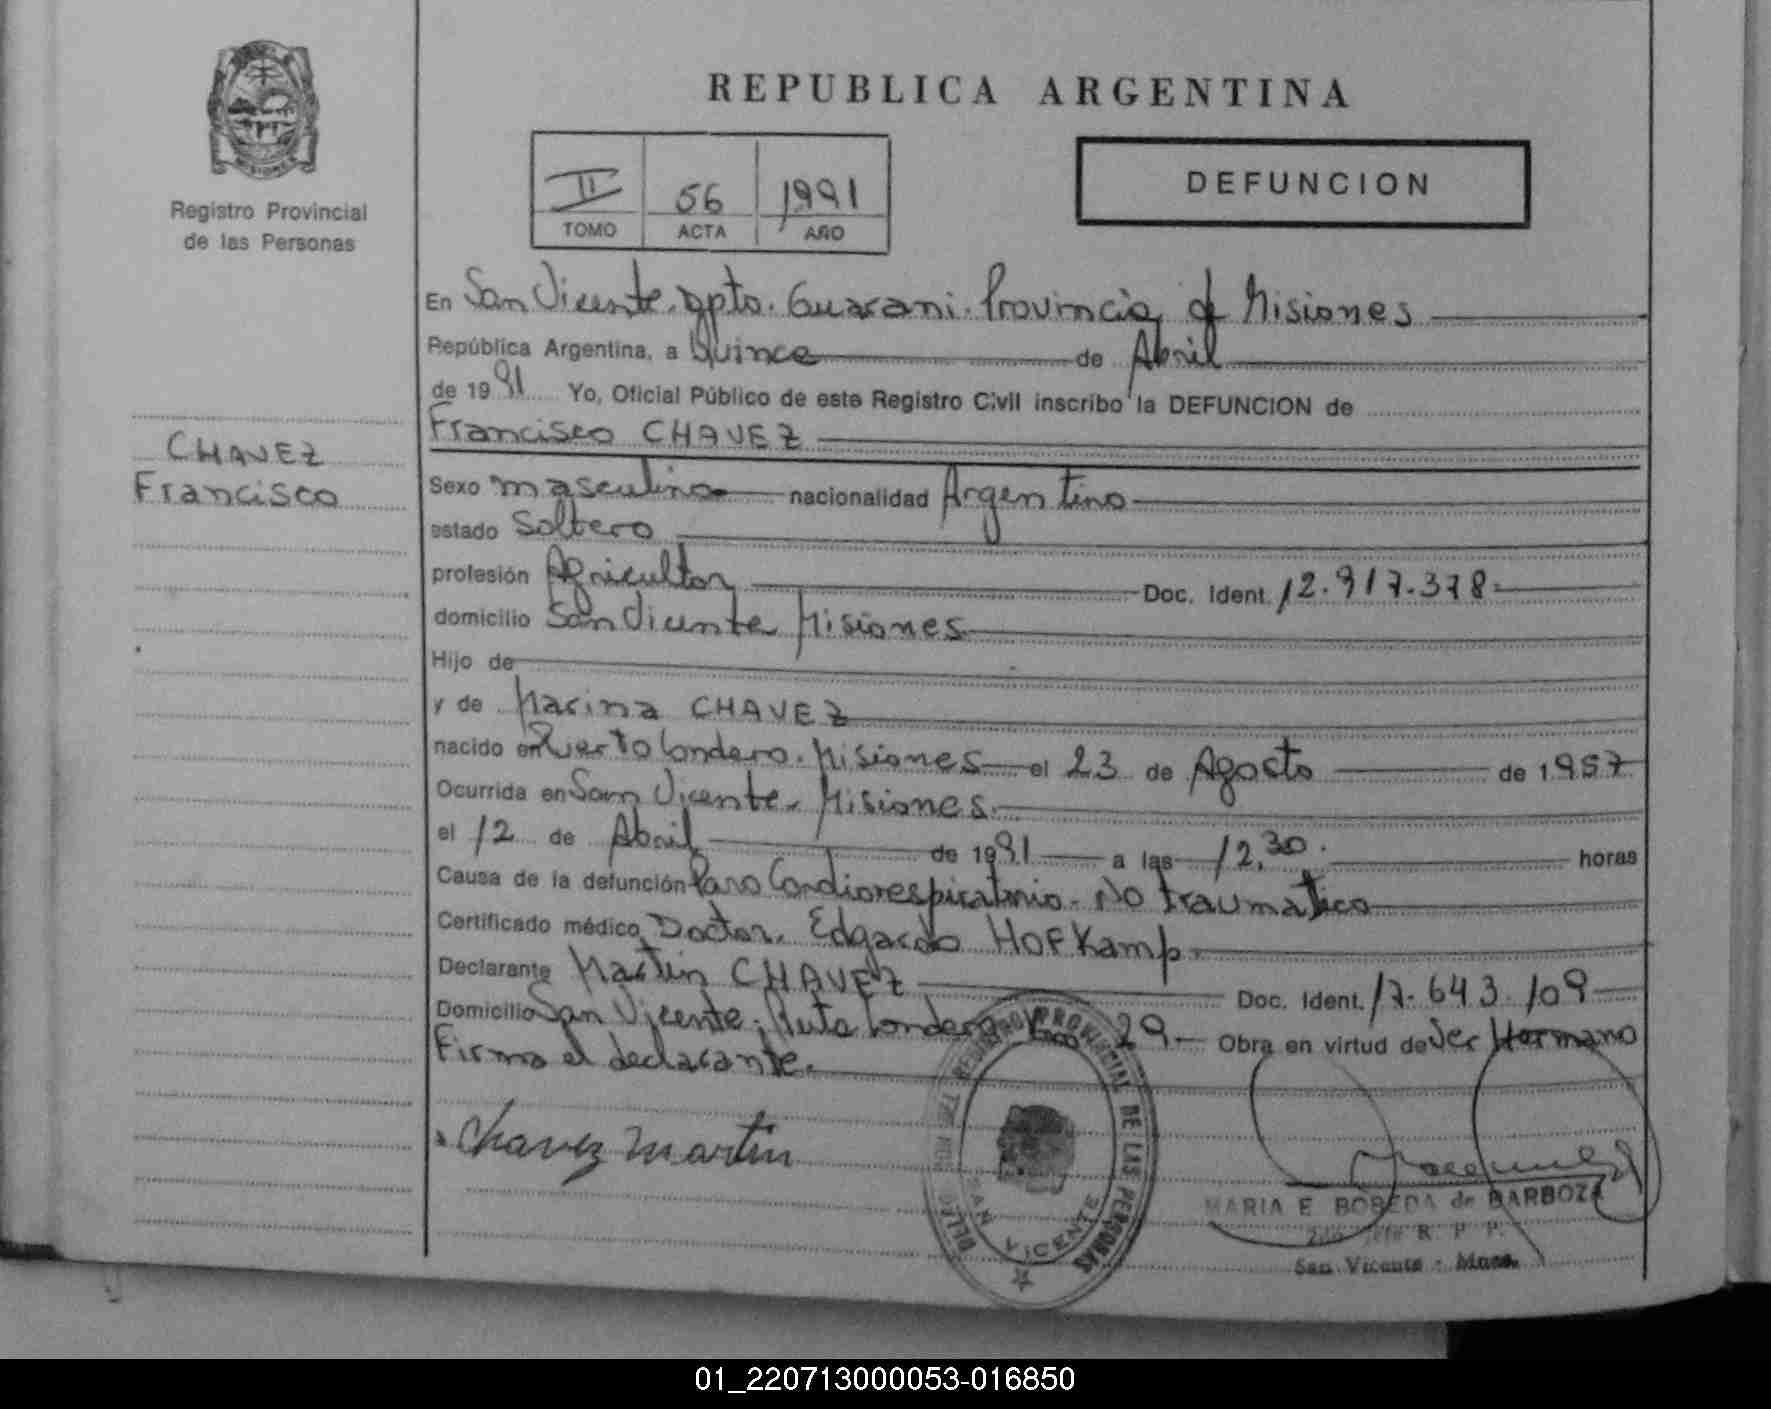 REPUBLICA ARGENTINA
Registro Provincial
de las Personas
II 56 1991
TOMO ACTA AÑO
DEFUNCION
CHAVEZ
Francisco
En San Vicente. Dpto. Guarani. Provincia de Misiones
República Argentina, a Quince de Abril
de 1991 Yo, Oficial Público de este Registro Civil inscribo la DEFUNCION de
Francisco CHAVEZ
Sexo masculino nacionalidad Argentino
estado Soltero
profesión Agricultor Doc. Ident. 12.917.378
domicilio San Vicente Misiones
Hijo de
y de Marina CHAVEZ
nacido en Puerto Londero. Misiones el 23 de Agosto de 1957
Ocurrida en San Vicente. Misiones.
el 12 de Abril de 1991 a las 12,30. horas
Causa de la defunción Paro Cardiorespiratorio. No traumatico
Certificado médico Doctor. Edgardo HOFKamp.
Declarante Martin CHAVEZ Doc. Ident. 17.643.109
Domicilio San Vicente; Ruta Londero Km 29. Obra en virtud de Ser Hermano
Firma el declarante.
Chavez Martin
REGISTRO PROVINCIAL DE LAS PERSONAS
SAN VICENTE
MARIA E. BOBEDA de BARBOZA
R. P. P.
San Vicente - Mnes.
01_220713000053-016850